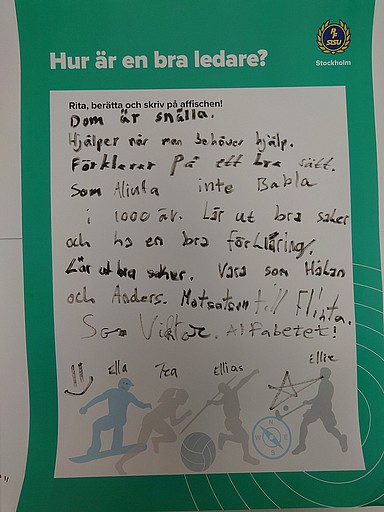 RF
SISU
Stockholm
Hur är en bra ledare?
Rita, berätta och skriv på affischen!
Dom är snälla.
Hjälper når man behöver hjälp.
Förklarar på ett bra sätt.
Som inte Babla
i 1000 år. Lär ut bra saker
och ha en bra förklaring.
Lär ut bra saker. Vara som Håkan
och Anders. Motsatsen till Flinta.
Som Viktor. Alfabetet!
Ella Tea Ellias Ellie
N
W E
S